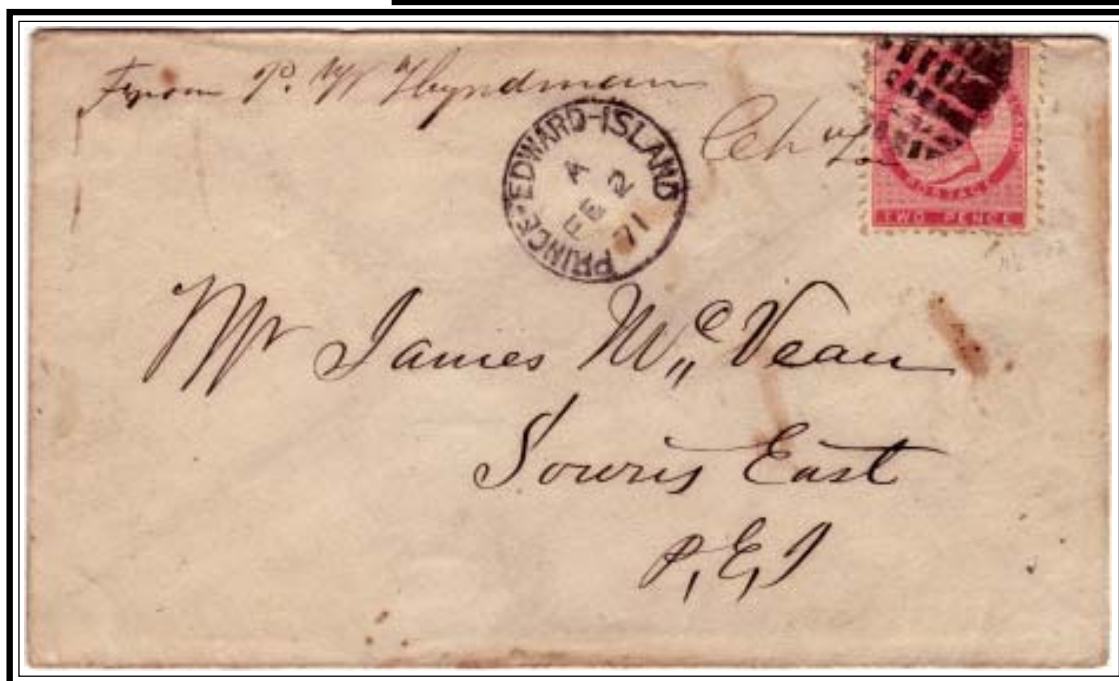 From P. W Hyndman
Ch Town
PRINCE-EDWARD-ISLAND
A
FE 2
71
POSTAGE
TWO PENCE
Mr James Mc Vean
Souris East
P, E, I